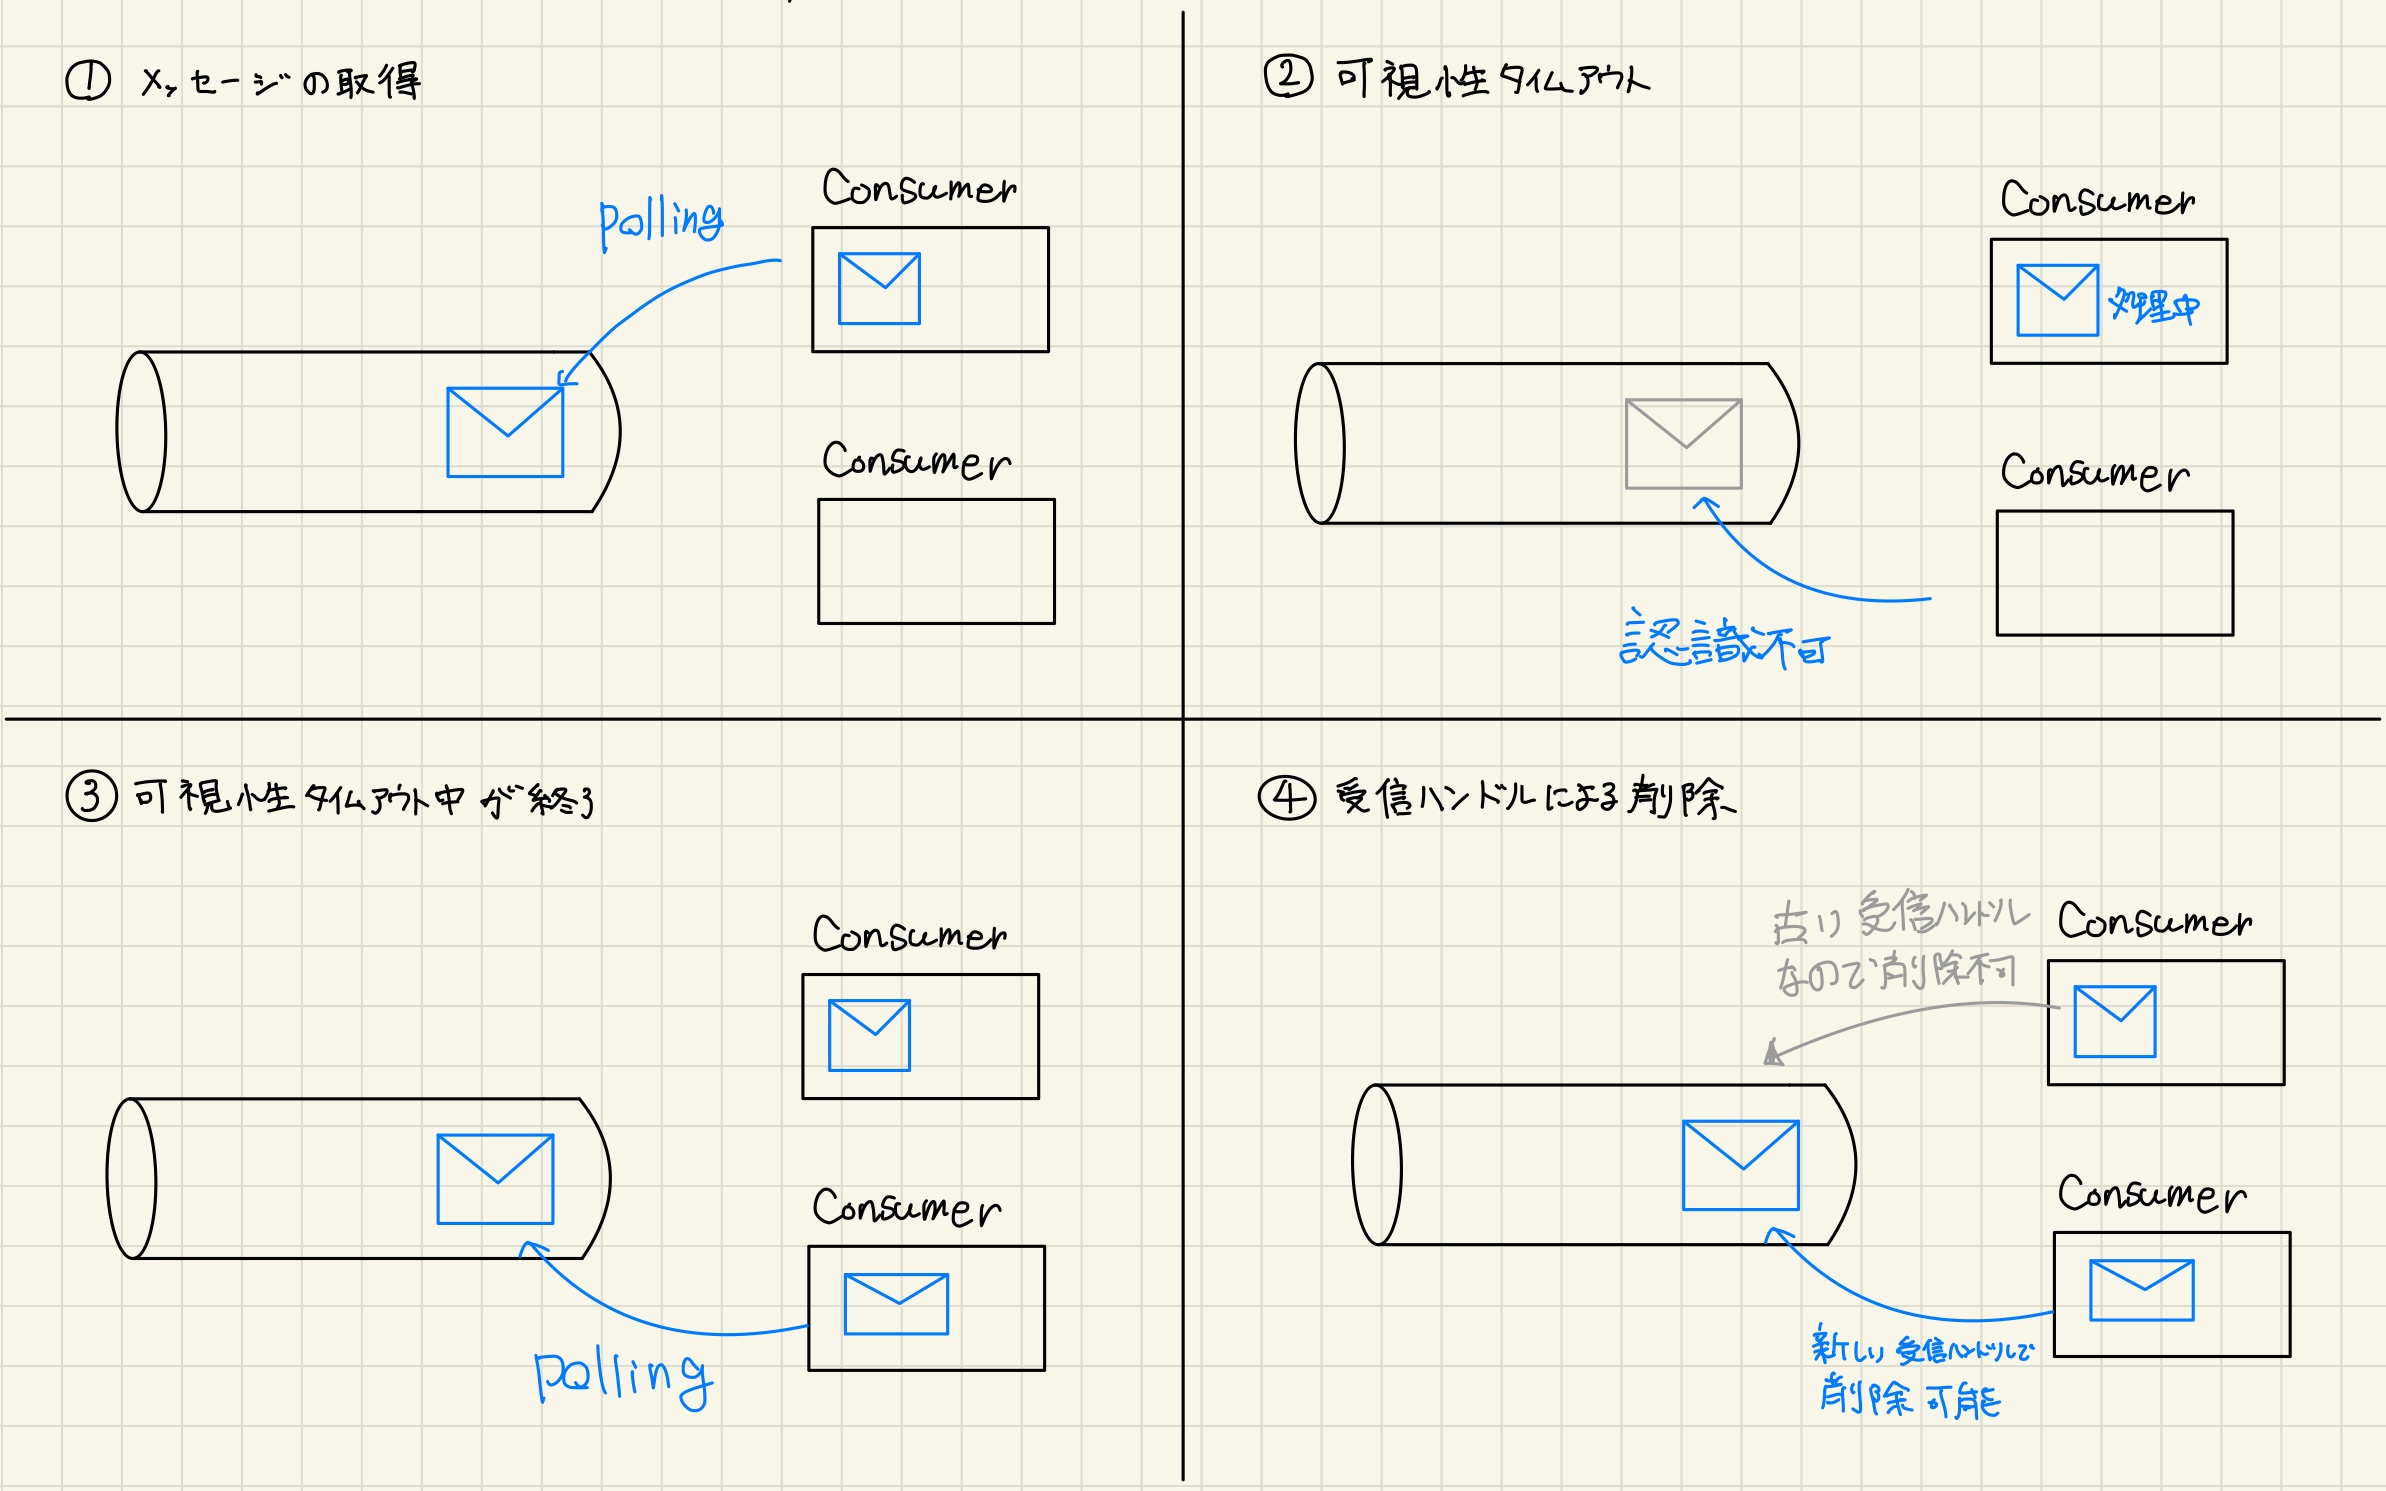 ① メッセージの取得
Consumer
polling
Consumer
② 可視性タイムアウト
Consumer
処理中
Consumer
認識不可
③ 可視性タイムアウト中が終了
Consumer
Consumer
polling
④ 受信ハンドルによる削除
古い受信ハンドル
なので削除不可
Consumer
Consumer
新しい受信ハンドルで
削除可能